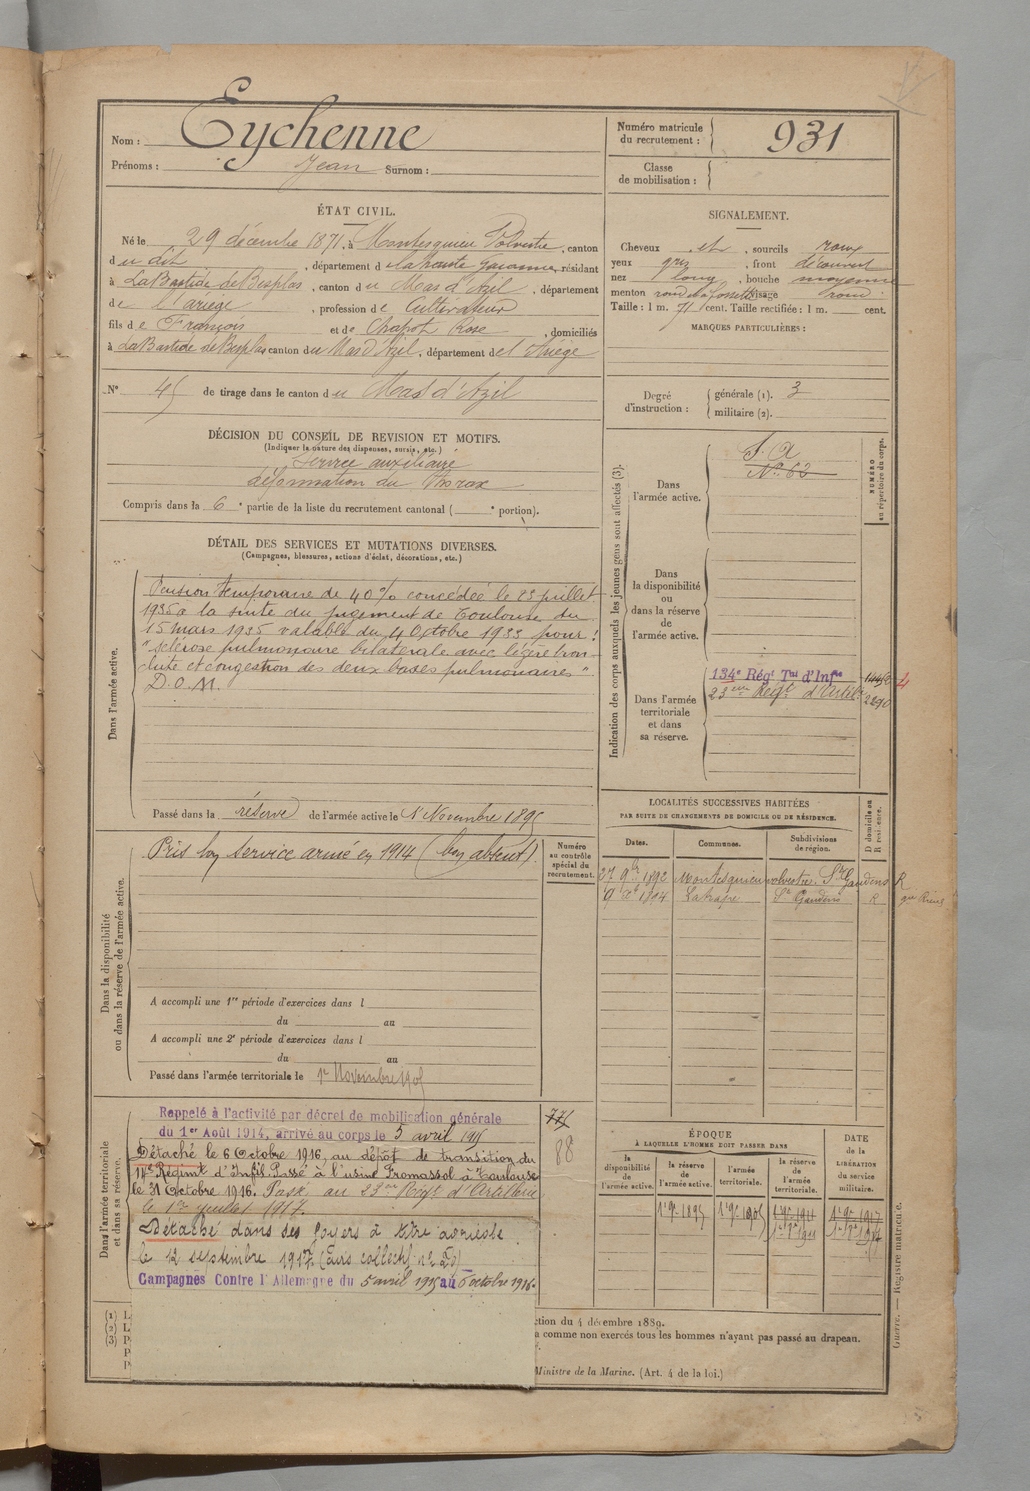 Nom : Eychenne
Prénoms : Jean Surnom :
Numéro matricule du recrutement : 931
Classe de mobilisation :
ÉTAT CIVIL.
Né le 29 décembre 1871, à Montesquieu Volvestre, canton
du dit, département de la haute Garonne, résidant
à La Bastide de Besplas, canton du Mas d'Azil, département
de l'ariège, profession de Cultivateur
fils de François et de Chapot Rose, domiciliés
à La Bastide de Besplas canton du Mas d'Azil, département de l'Ariège
N° 45 de tirage dans le canton du Mas d'Azil
SIGNALEMENT.
Cheveux et, sourcils roux
yeux gris, front découvert
nez long, bouche moyenne
menton rond à fossette visage rond.
Taille : 1 m. 71 cent. Taille rectifiée : 1 m. cent.
MARQUES PARTICULIÈRES :
Degré d'instruction : générale (1). 3
militaire (2).
DÉCISION DU CONSEIL DE REVISION ET MOTIFS.
(Indiquer la nature des dispenses, sursis, etc.)
Service auxiliaire
déformation du thorax
Compris dans la 6e partie de la liste du recrutement cantonal ( e portion).
DÉTAIL DES SERVICES ET MUTATIONS DIVERSES.
(Campagnes, blessures, actions d'éclat, décorations, etc.)
Dans l'armée active.
Pension temporaire de 40% concédée le 23 juillet
1935 à la suite du jugement de Toulouse du
15 mars 1935 valable du 4 Octobre 1933 pour :
"sclérose pulmonaire bilatérale avec légère bron-
chite et congestion des deux bases pulmonaires".
D.O.M.
Passé dans la réserve de l'armée active le 1er Novembre 1895
Dans la disponibilité ou dans la réserve de l'armée active.
Pris bon service armé en 1914 (bon absent).
Numéro au contrôle spécial du recrutement.
A accompli une 1re période d'exercices dans l
du au
A accompli une 2e période d'exercices dans l
du au
Passé dans l'armée territoriale le 1er Novembre 1905
Dans l'armée territoriale et dans sa réserve.
Rappelé à l'activité par décret de mobilisation générale
du 1er Août 1914, arrivé au corps le 5 avril 1915
Détaché le 6 Octobre 1916, au dépôt de transition du
14e Régiment d'Infie. Passé à l'usine Fromassol à Toulouse
le 31 Octobre 1916. Passé au 23me Régt d'Artillerie
le 1er juillet 1917.
Détaché dans ses foyers à titre agricole
le 12 septembre 1917
Campagnes Contre l'Allemagne du 5 avril 1915 au 6 octobre 1916.
775
88
Indication des corps auxquels les jeunes gens sont affectés (3).
NUMÉRO au répertoire du corps.
Dans l'armée active.
S. A
N° 62
Dans la disponibilité ou dans la réserve de l'armée active.
Dans l'armée territoriale et dans sa réserve.
134e Régt Tal d'Infie
23eme Régt d'Artil.
2290
LOCALITÉS SUCCESSIVES HABITÉES
PAR SUITE DE CHANGEMENTS DE DOMICILE OU DE RÉSIDENCE.
Dates. Communes. Subdivisions de région. D domicile ou R résidence.
27 9bre 1892 Montesquieu volvestre St Gaudens R
Latrape St Gaudens R
ÉPOQUE
À LAQUELLE L'HOMME DOIT PASSER DANS
DATE DE LA LIBÉRATION du service militaire.
la disponibilité de l'armée active.
la réserve de l'armée active.
l'armée territoriale.
la réserve de l'armée territoriale.
1er 9bre 1895 1er 9bre 1905 1er 9bre 1911 1er 9bre 1917
(1) L
(2) L
(3) P
P
P
ction du 4 décembre 1889.
a comme non exercés tous les hommes n'ayant pas passé au drapeau.
Ministre de la Marine. (Art. 4 de la loi.)
Guerre. — Registre matricule.